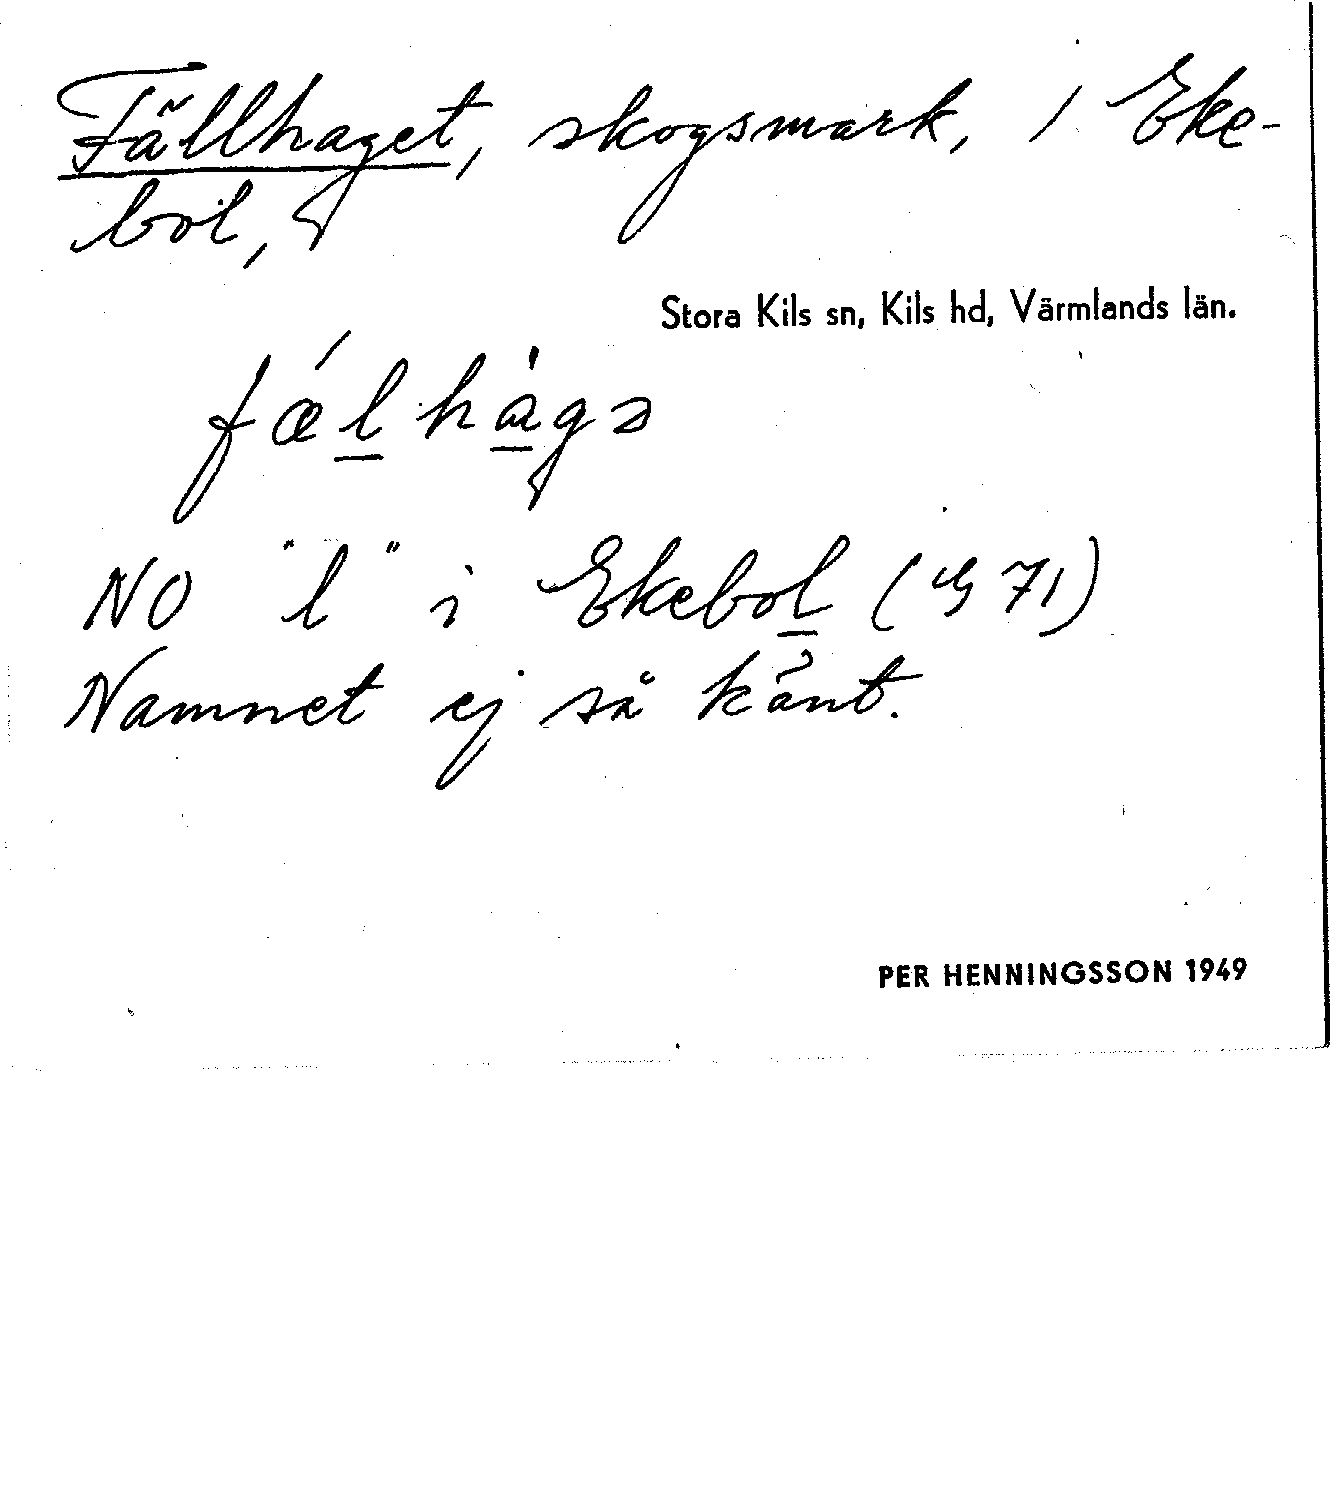 Fällhaget, skogsmark, 1 Eke-
bol,
Stora Kils sn, Kils hd, Värmlands län.
fǽlhàgə
NO "l" i Ekebol ( 71)
Namnet ej så känt.
PER HENNINGSSON 1949